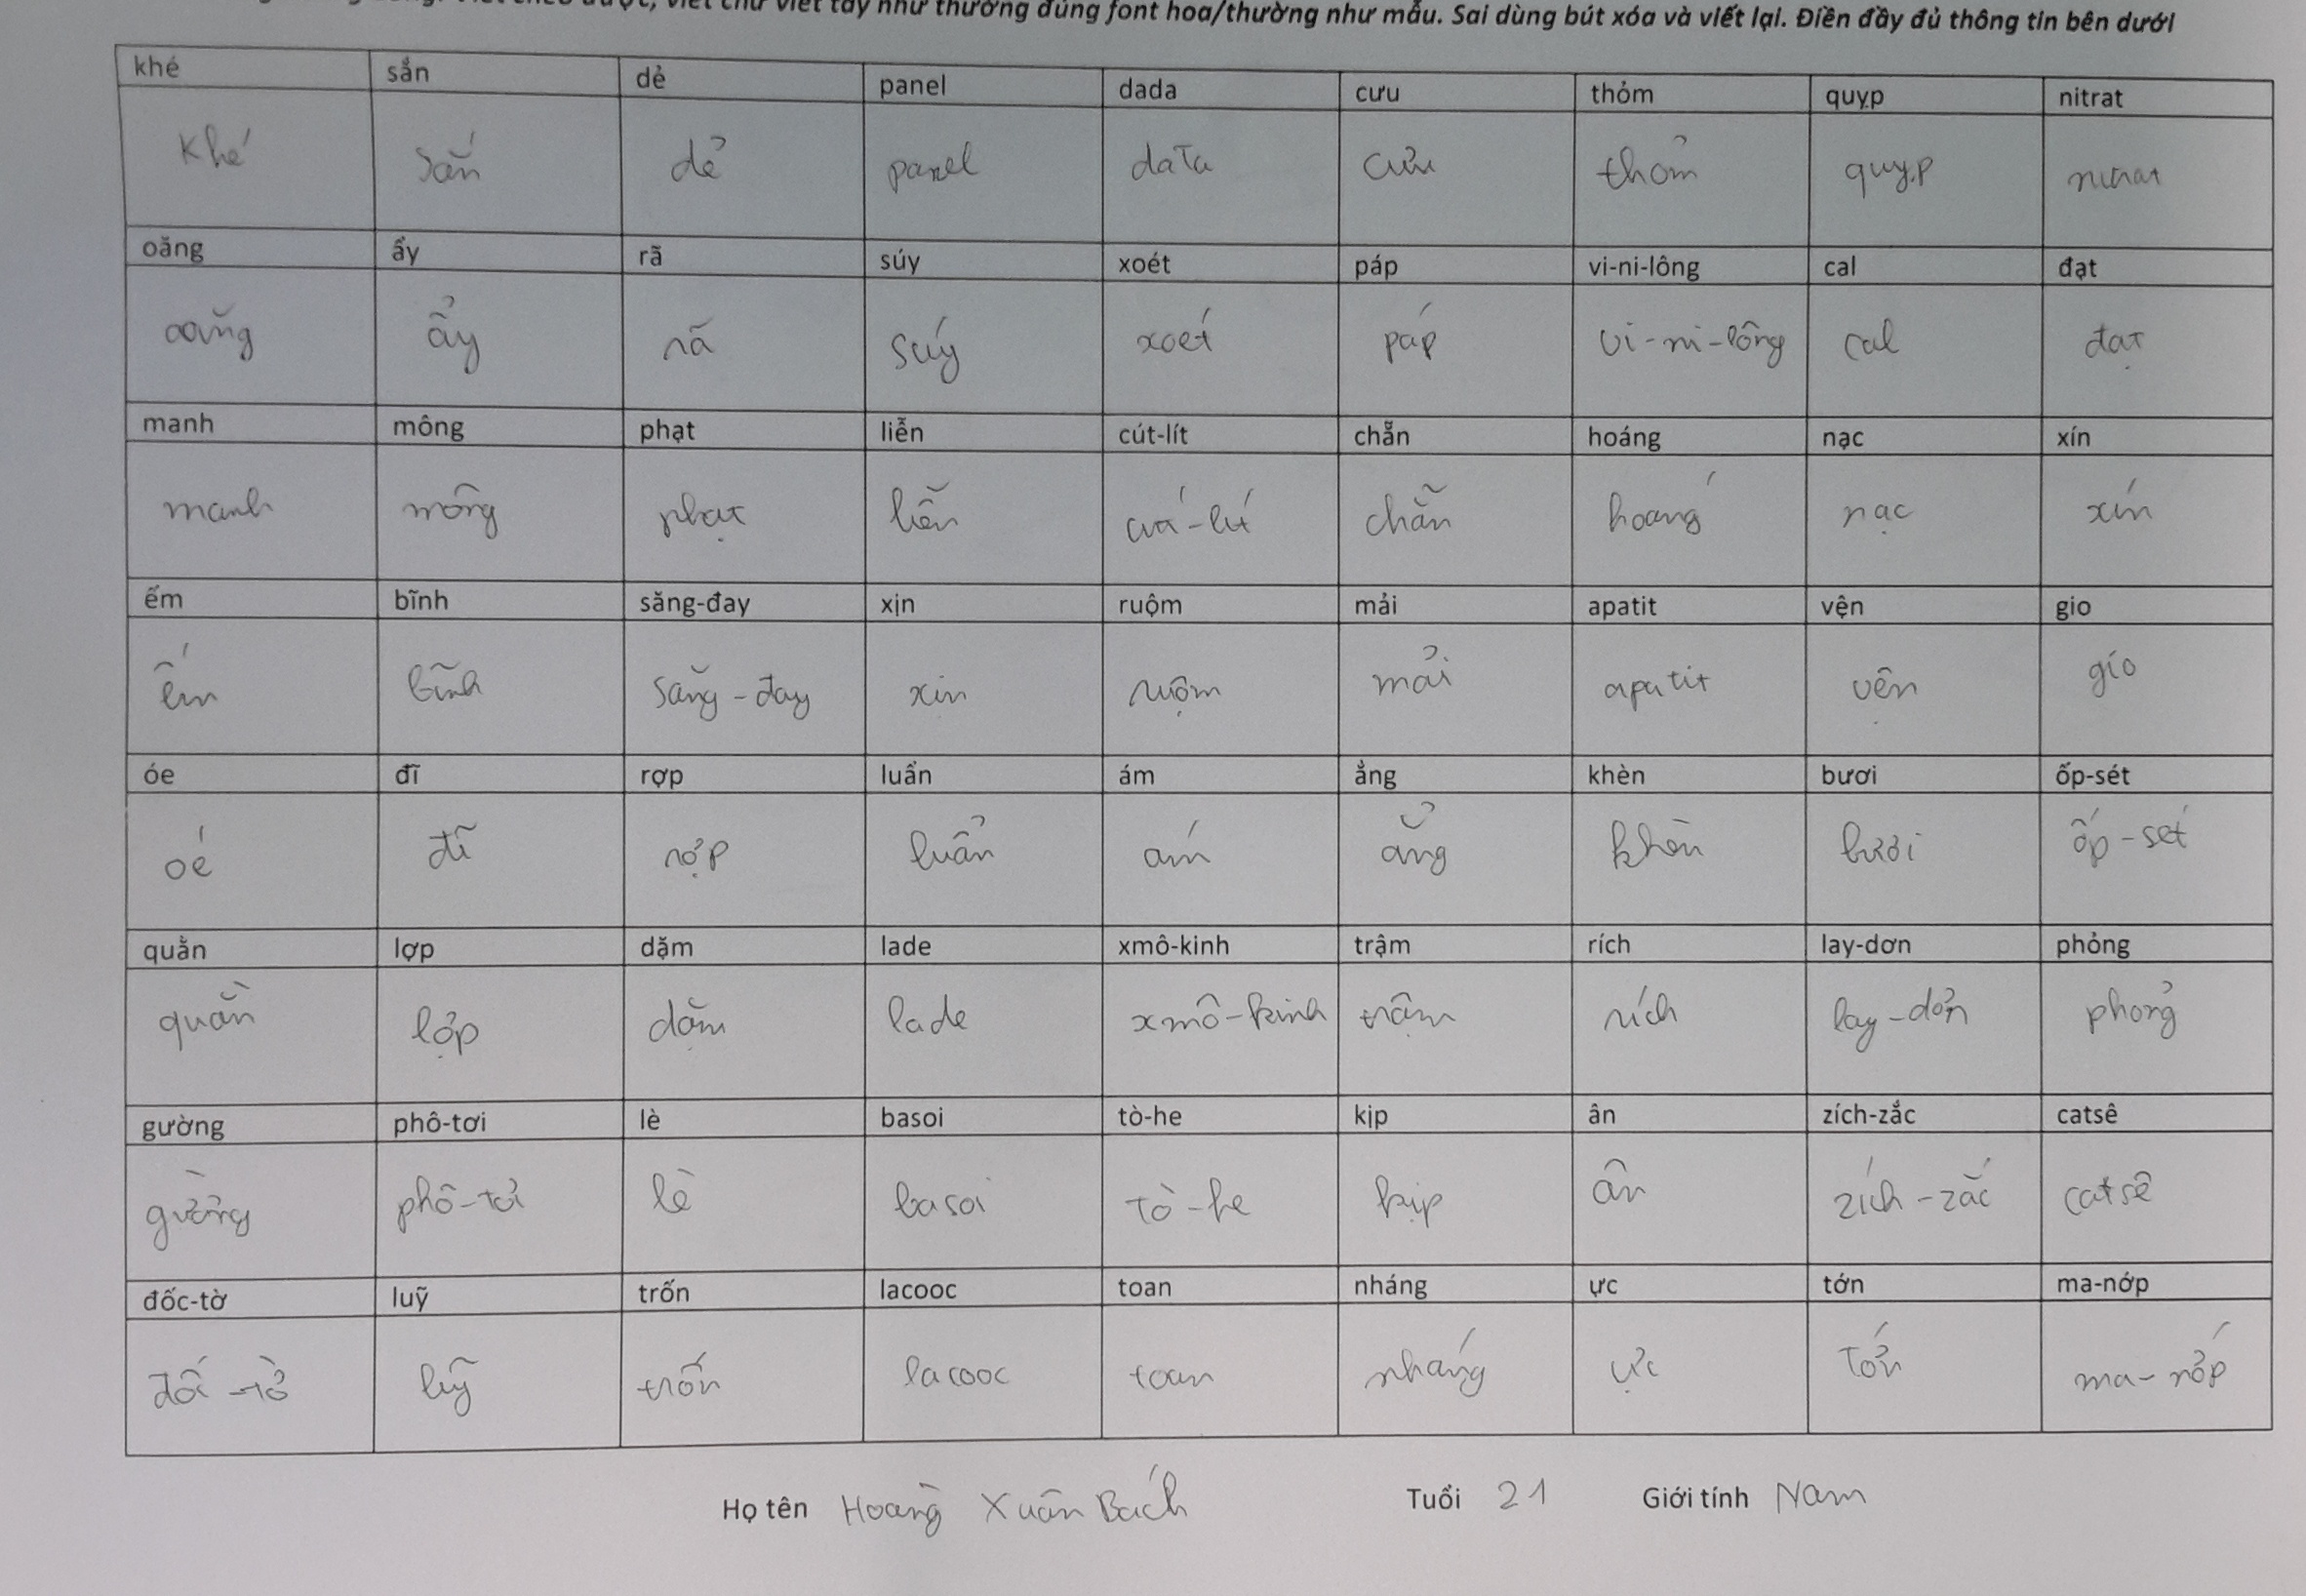 viết chữ viết tay như thường đúng font hoa/thường như mẫu. Sai dùng bút xóa và viết lại. Điền đầy đủ thông tin bên dưới
khé sắn dẻ panel dada cưu thỏm quỵp nitrat
Khé sắn dẻ panel data cưu thỏm quỵp nitrat
oăng ẩy rã súy xoét páp vi-ni-lông cal đạt
oăng ẩy rã súy xoét páp vi-ni-lông cal đạt
manh mông phạt liễn cút-lít chẵn hoáng nạc xín
manh mông phạt liễn cút-lít chẵn hoáng nạc xín
ếm bĩnh săng-đay xịn ruộm mải apatit vện gio
ếm bĩnh săng-đay xịn ruộm mải apatit vện gio
óe đĩ rợp luẩn ám ẳng khèn bươi ốp-sét
oé đĩ rợp luẩn ám ẳng khèn bươi ốp-sét
quằn lợp dặm lade xmô-kinh trậm rích lay-dơn phỏng
quằn lợp dặm lade xmô-kinh trậm rích lay-dơn phỏng
gường phô-tơi lè basoi tò-he kịp ân zích-zắc catsê
gường phô-tơi lè basoi tò-he kịp ân zích-zắc catsê
đốc-tờ luỹ trốn lacooc toan nháng ực tớn ma-nớp
đốc-tờ luỹ trốn lacooc toan nháng ực tớn ma-nớp
Họ tên Hoàng Xuân Bách Tuổi 21 Giới tính Nam